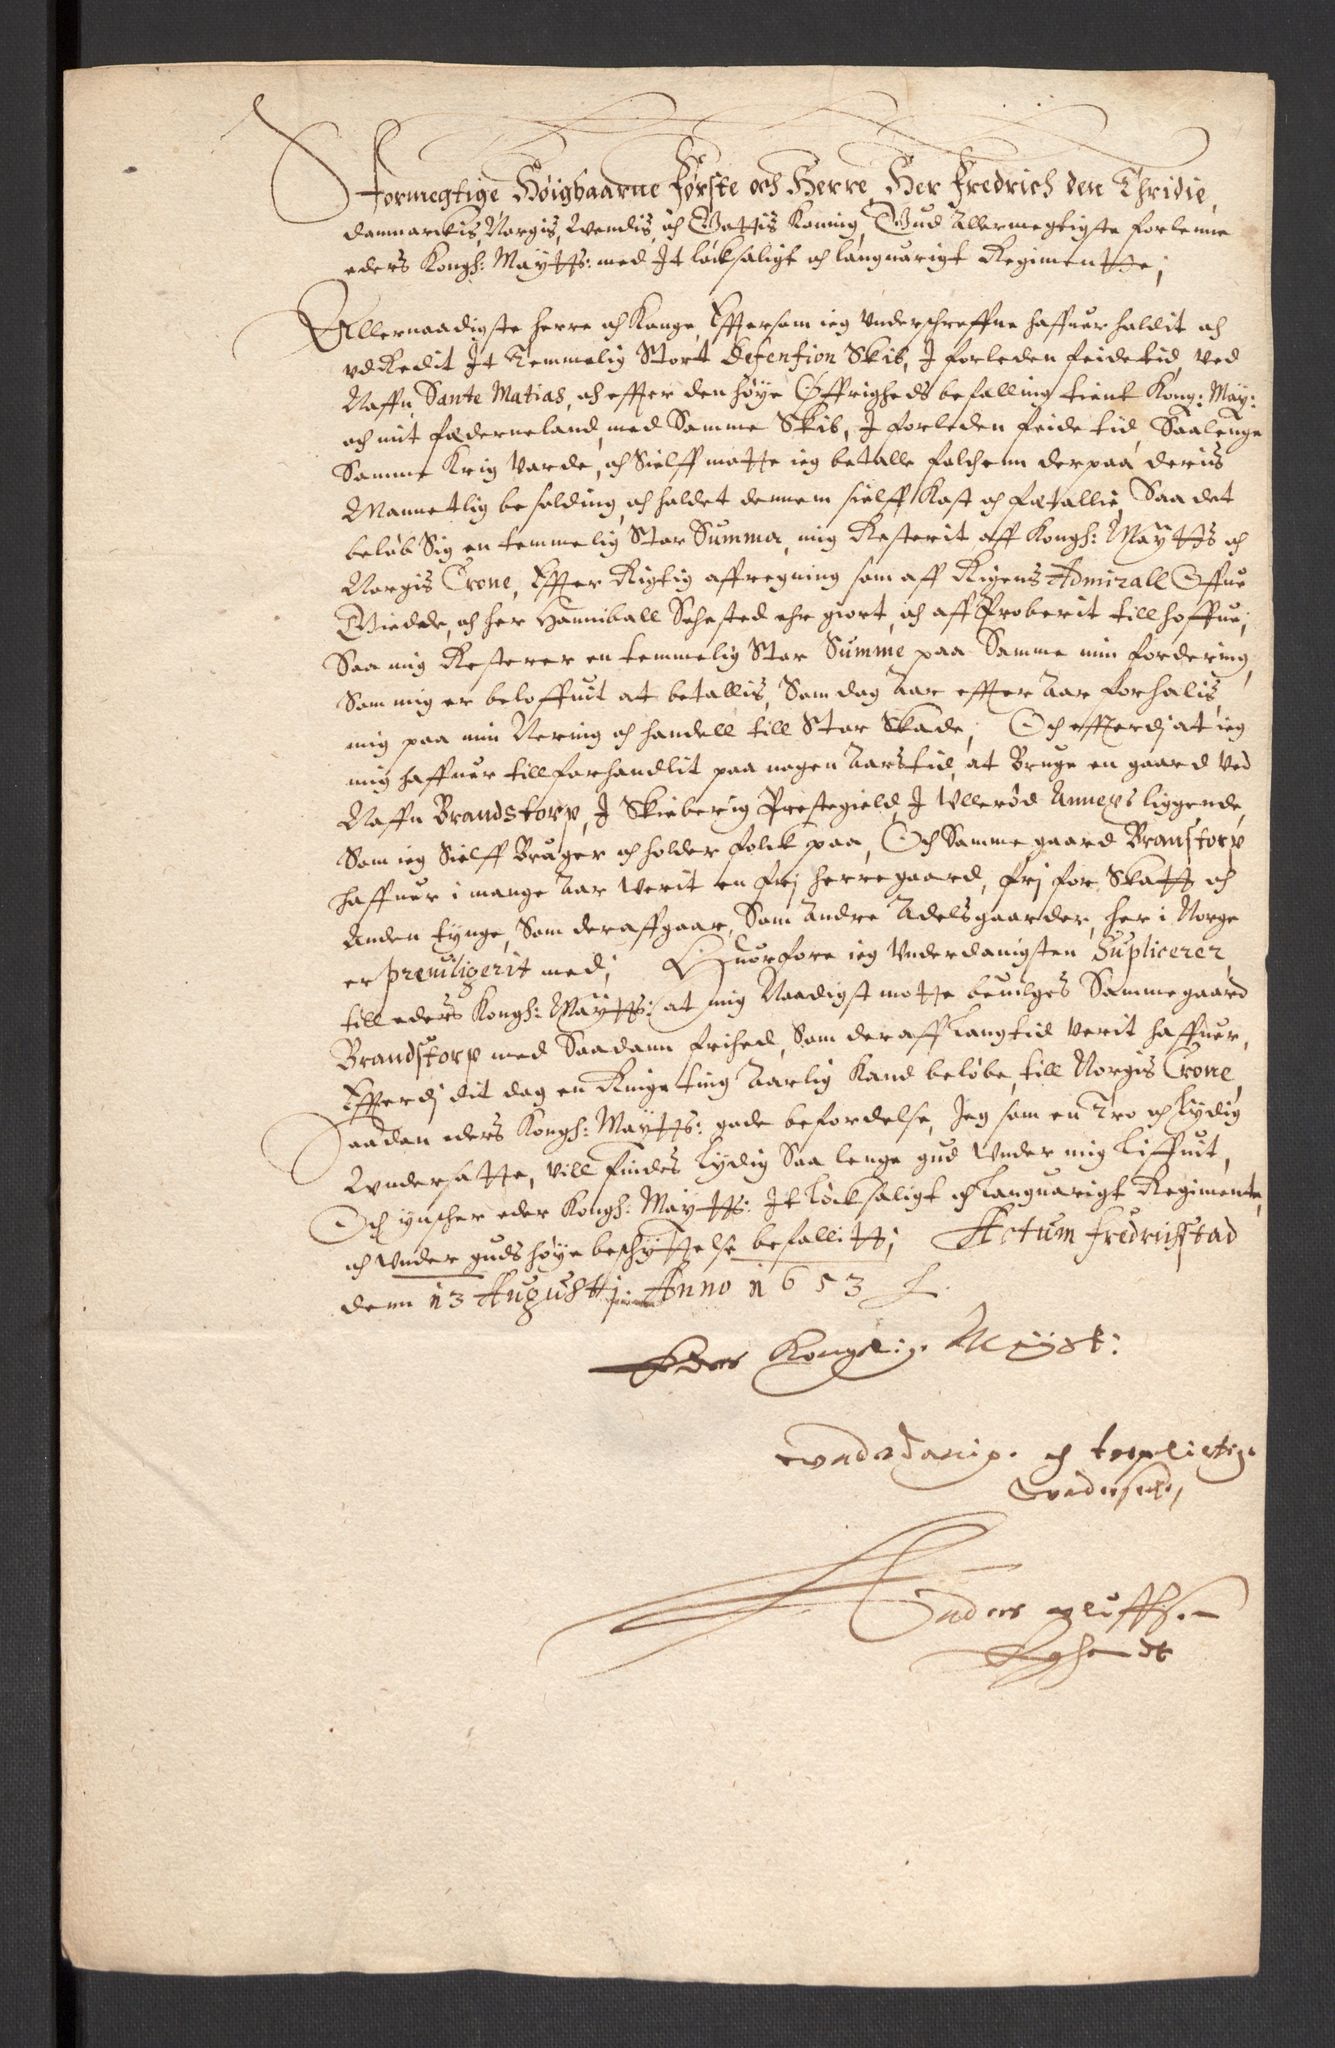 Stormegtige Høigbaarne Første och Herre, Her Fredrich den Thridie,
danmarckis, Norgis, Wendis, och Gottis Koning, Gud Allermegtigste forlenne
eders Kongh: Maÿtts: med It löcksaligt och languarigt Regimentte;
Allernaadigste herre och Konge, Effter som ieg Vnderschreffne haffuer holdit och
vdRedit It Temmelig Stort Defension Skib, J forleden feide tid, ved
Naffn Sante Matias, och effter den høye Øffrigheds befalling tient Kong: Maÿ:
och mit fæderneland, med Samme Skib, J forleden feide tid, Saalenge
Samme Krig Varde, och Sielff motte ieg betalle folchenn derpaa deris
Mannetlig besolding, och holdet dennem sielff Kost och fetallie, Saa det
beløb Sig en temmelig Stor Summa, mig Resterit aff Kongh: Maÿtts och
Norgis Crone, Effter Rigtig affregning som aff Rigens Admirall Offue
Giedde, och her Hanniball Sehested ehr giort, och aff Proberit till hoffue;
Saa mig Resterer en temmelig Stor Summe paa Samme min fordering,
Som mig er beloffuit at betallis, Som dog Aar effter Aar forholis,
mig paa min Nering och handell till Stor Skade; Och effterdj at ieg
mig haffuer tillforhandlit paa nogen Aarstid, at Bruge en gaard Ved
Naffn Brandstorp, J Skieberig Prestegield, J Vllerød Annexs liggende,
Som ieg Sielff Bruger och holder folck paa, Och Samme gaard Branstorp
haffuer i mange Aar Verit en frj herregaard, frj for Skatt och
Anden tynge, Som deraffgaar, Som Andre Adelsgaarder, her i Norge
er preuiligerit med; Huorfore ieg Vnderdanigsten Suplicerer
till eders Kongh: Maÿtts: at mig Naadigst motte beuilges Samme gaard
Brandstorp med Saadann frihed, Som deraff Langtid Verit haffuer,
Effterdj dit dog en Ringe ting Aarlig Kand beløbe, till Norgis Crone,
Saadan eders Kongh: Maÿtts: gode befordelse, Jeg som en Tro och Lydig
Vndersatte, vill findes Lydig Saa lenge gud Vnder mig Liffuit,
Och ynscher eder Kongh: Maÿtts: It Löcksaligt och Languarigt Regimente,
och Vnder guds høye beschyttelse befallitt; Actum Fredrichstad
denn 13 Augustj Anno 1653
Eders Konglig: Maÿst:
vnderdanig. och tropligtig.
Vndersatt,
Anders oluffsen